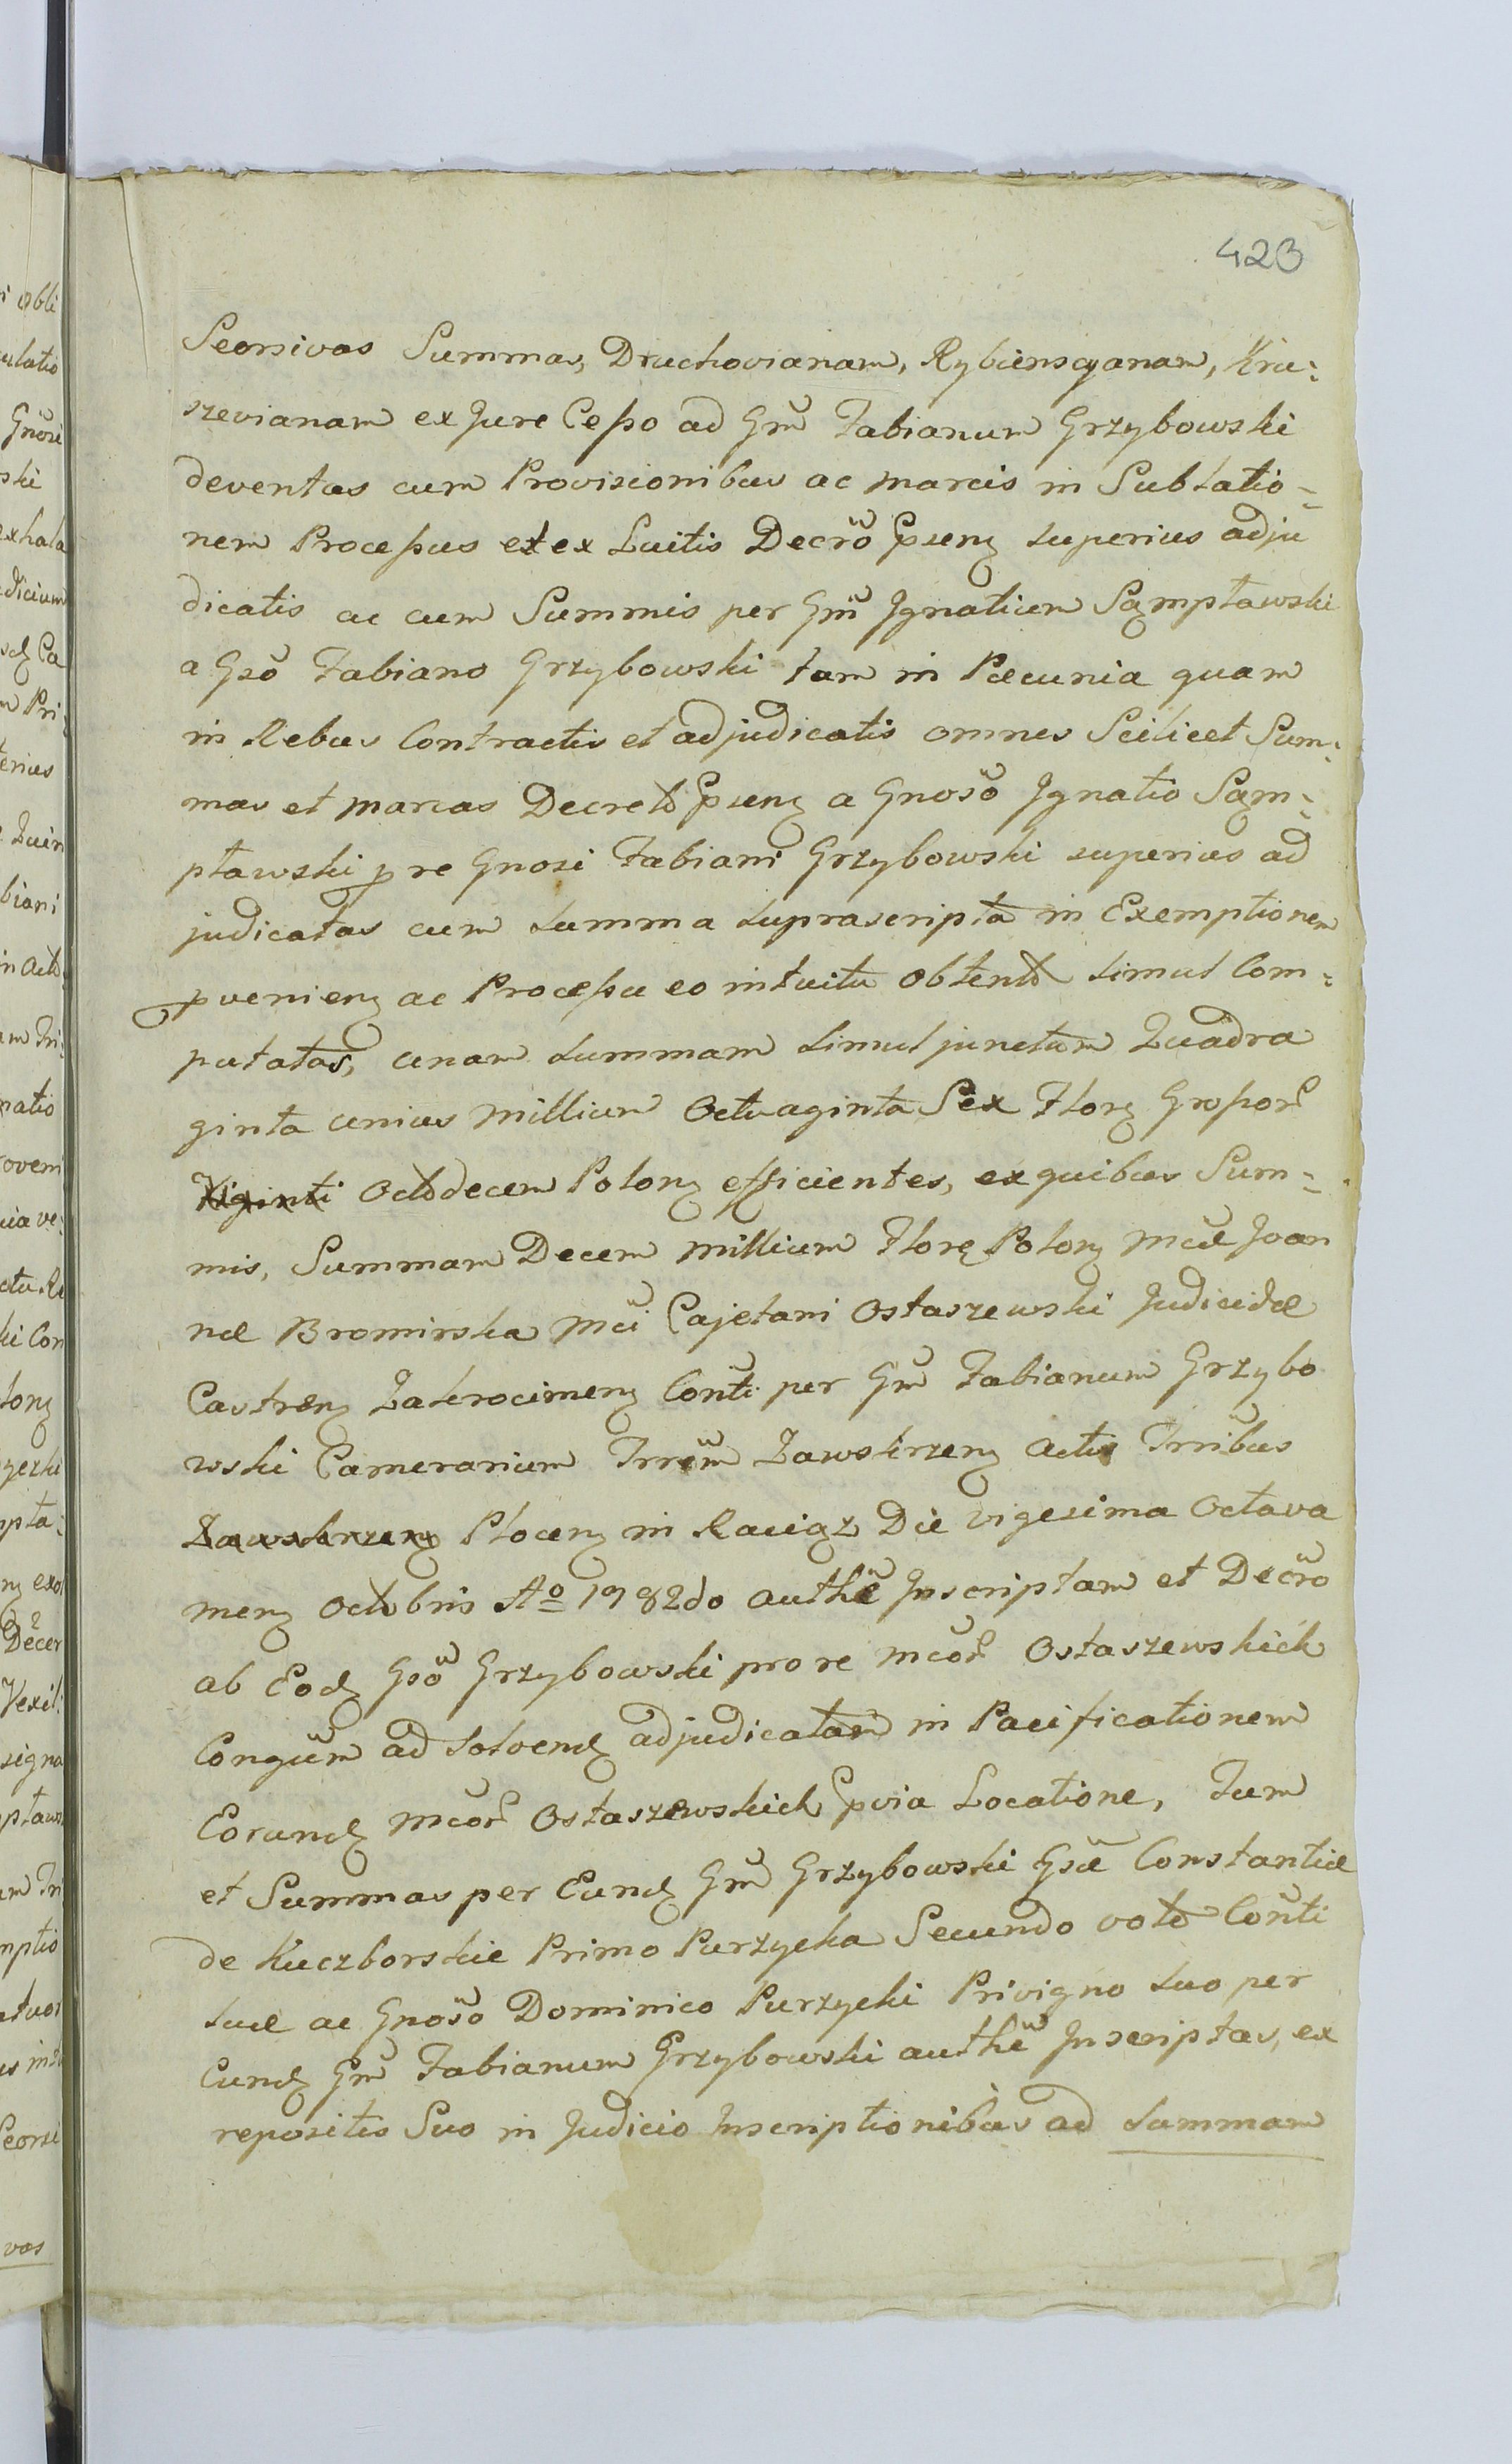 423
Seorsivas Summas, Druchovianam, Rybienscyanam, Kru:
szevianam ex Jure Cesso ad Gm̃ Fabianum Grzybowski
deventas cum Provisionibus ac marcis in Sublatio=
nem Processus et ex Luitis Decr̃o Pseng superius adju
dicatis ac cum Summis per Gm̃ Ignatium Sąmpławski
a Gsõ Fabiano Grzybowski tam in Pecunia quam
in Rebus Contractis et adjudicatis omnes Scilicet Sum:
mas et marcas Decreto Pseng a Gnosõ Ignatio Sąm=
pławski p re Gnosi Fabiani Grzybowski superius ad
judicatas cum summa suprascripta in Exemptionem
pvenieng ac Processu eo intuitu obtento simul Com=
putatas, unam summam simul junctam Quadra
ginta unius millium Octuaginta Sex Florg Grossor̃
Viginti Octodecem Polong efficientes, ex quibus Sum=
mis, Summam Decem millium Florg Polong Mcæ Joan
næ Bromirska Mci Cajetani Ostaszewski Judicidæ
Castreng Zakrocimeng Conti per Gm̃ Fabianum Grzybo
wski Camerarium Trrem̃ Zawskrzeng Actis Trribus
Zawskrzeng Ploceng in Raciąz Die vigesima Octava
meng Octobris Ao 1782do authẽ Inscriptam et Decr̃o
ab Eodg Gsõ Grzybowski pro re Mcor̃ Ostaszewskich
Congũm ad Solvendg adjudicatam in Pacificationem
Eorundg Mcor̃ Ostaszewskich pvia Locatione, Tum
et Summas per Eundg Gm̃ Grzybowski Gsæ Constantiæ
de Kuczborskie Primo Purzycka Secundo voto Conti
suæ ac Gnosõ Dominico Purzycki Privigno suo per
Eundg Gm̃ Fabianum Grzybowski authẽ Inscriptas, ex
repositis Suo in Judicio Inscriptionibus ad summam